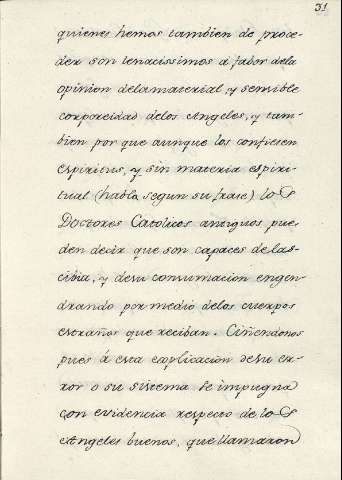 31
quienes hemos tambien de proce-
der son tenacissimos a fabor dela
opinion dela material, y sensible
corporeidad delos Angeles, y tam-
bien por que aunque los confiesen
espiritus, y sin materia espiri-
tual (habla segun su frase) lo S
Doctores Catolicos antiguos pue-
den decir que son capaces de las-
cibia, y de su consumacion engen-
drando por medio delos cuerpos
estraños que reciban. Ciñendonos
pues á esta explicacion de su er-
ror o su sistema se impugna
con evidencia respecto de lo S
Angeles buenos, que llamaron